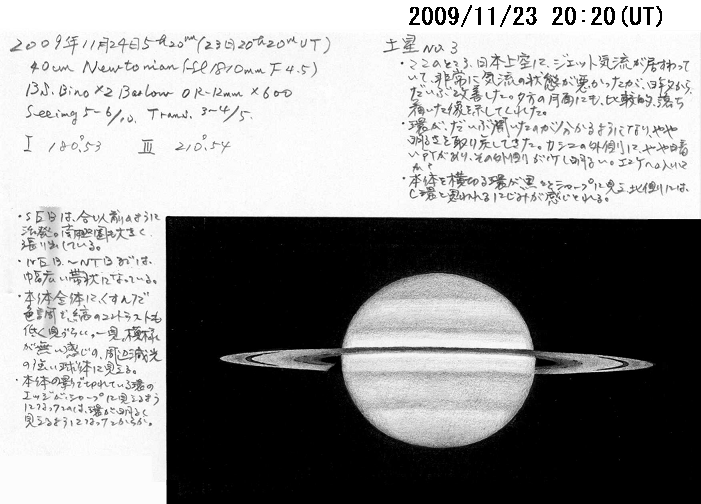 2009/11/23 20:20(UT)
2009年11月24日5h20m(23日20h20mUT)
40cm Newtonian (fl 1810mm F4.5)
B.S. Bino ×2 Barlow OR-12mm ×600
Seeing 5-6/10. Trans. 3-4/5.
I 180°.53 III 210°.54
土星 No.3
・ここのところ、日本上空に、ジェット気流が居すわって
いて、非常に気流の状態が悪かったが、昨夕から
だいぶ改善した。夕方の月面にも、比較的、落ち
着いた像を示してくれた。
・環が、だいぶ開いたのが分かるようになり、やや
明るさを取り戻してきた。カシニの外側に、やや暗
があり、その外側が少し明るい。エンケへの入いと
か?
・本体を横切る環が黒々とシャープに見え、北側には、
C環と思われるにじみが感じとれる。
・SEBは、合以前のように
活発。南 も大きく
張り出している。
・NEB〜NTBまでは、
幅広い帯状になっている。
・本体全体に、くすんだ
色調で、縞のコントラストも
低く見づらい。一見、模様
が無い感じの、周辺減光
の強い球体に見える。
・本体の影で切れている環の
エッジが、シャープに見えるよう
になったのは、環が明るく
見えるようになったからか。